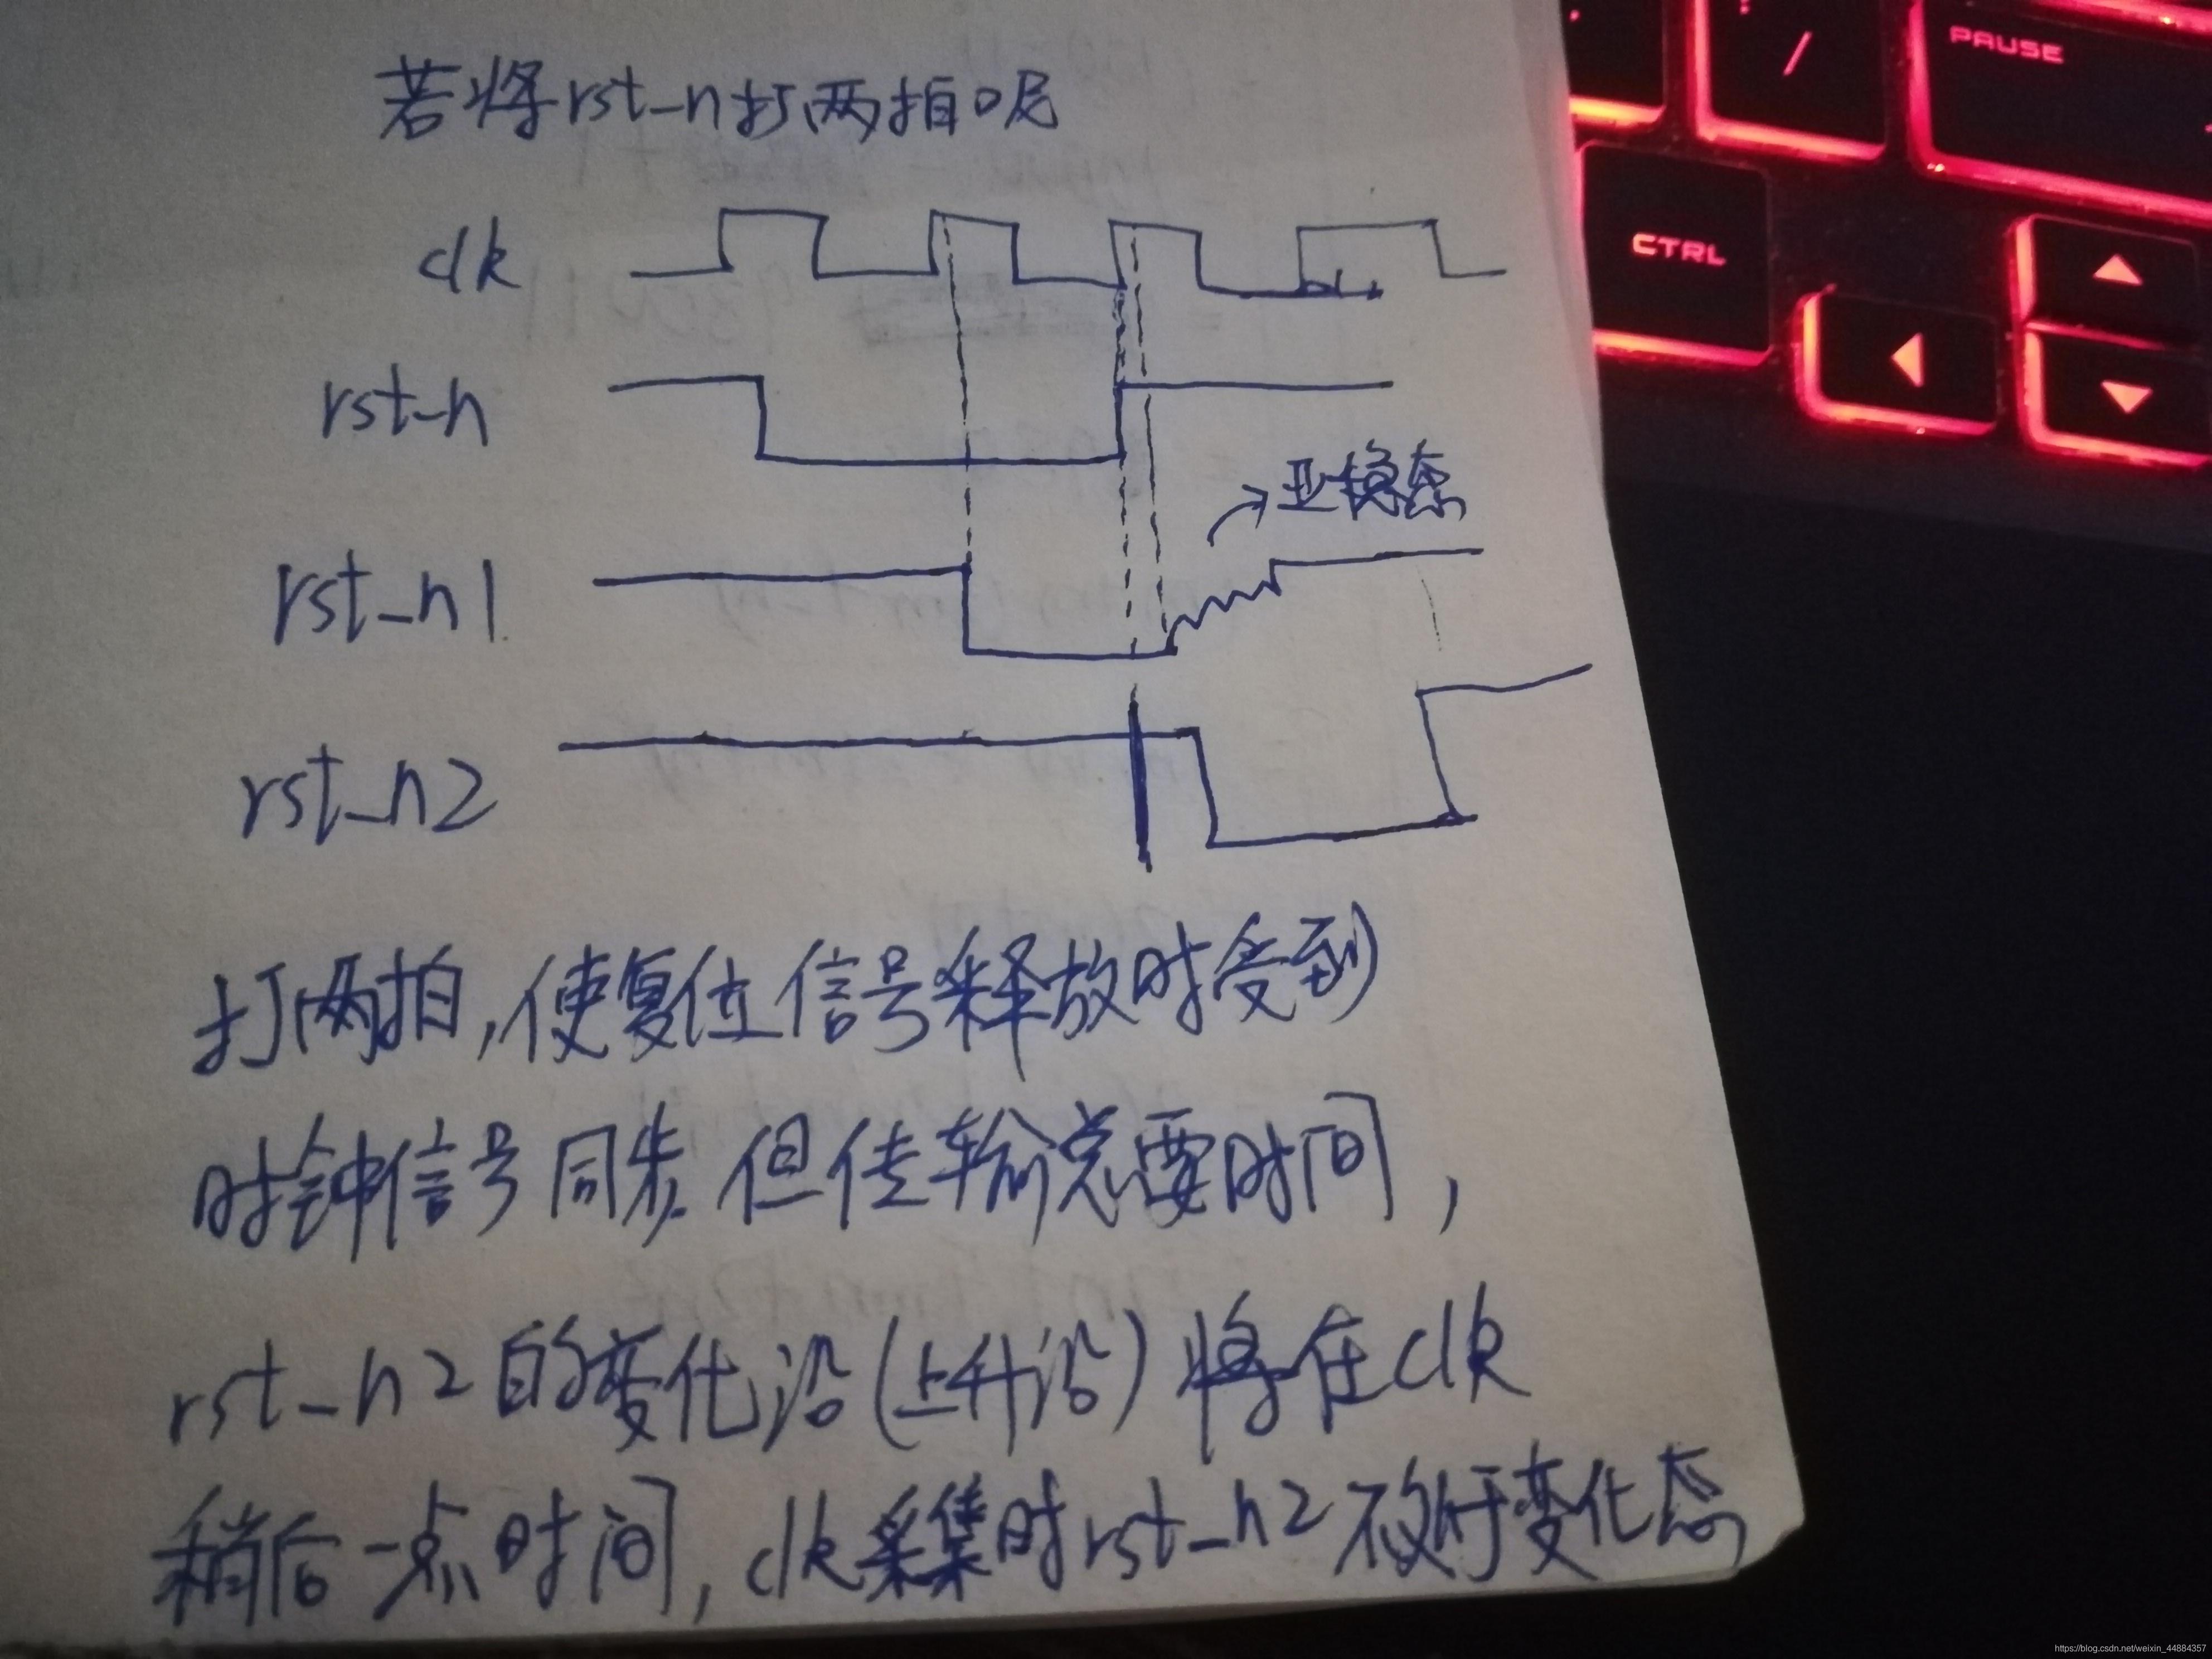 若将rst_n打两拍呢
clk
rst_n
亚稳态
rst_n1
rst_n2
打两拍,使复位信号释放时受到
时钟信号同步.但传输总要时间,
rst_n2的变化沿(上升沿)将在clk
稍后一点时间,clk采集时rst_n2不处于变化态
/
PAUSE
CTRL
https://blog.csdn.net/weixin_44884357